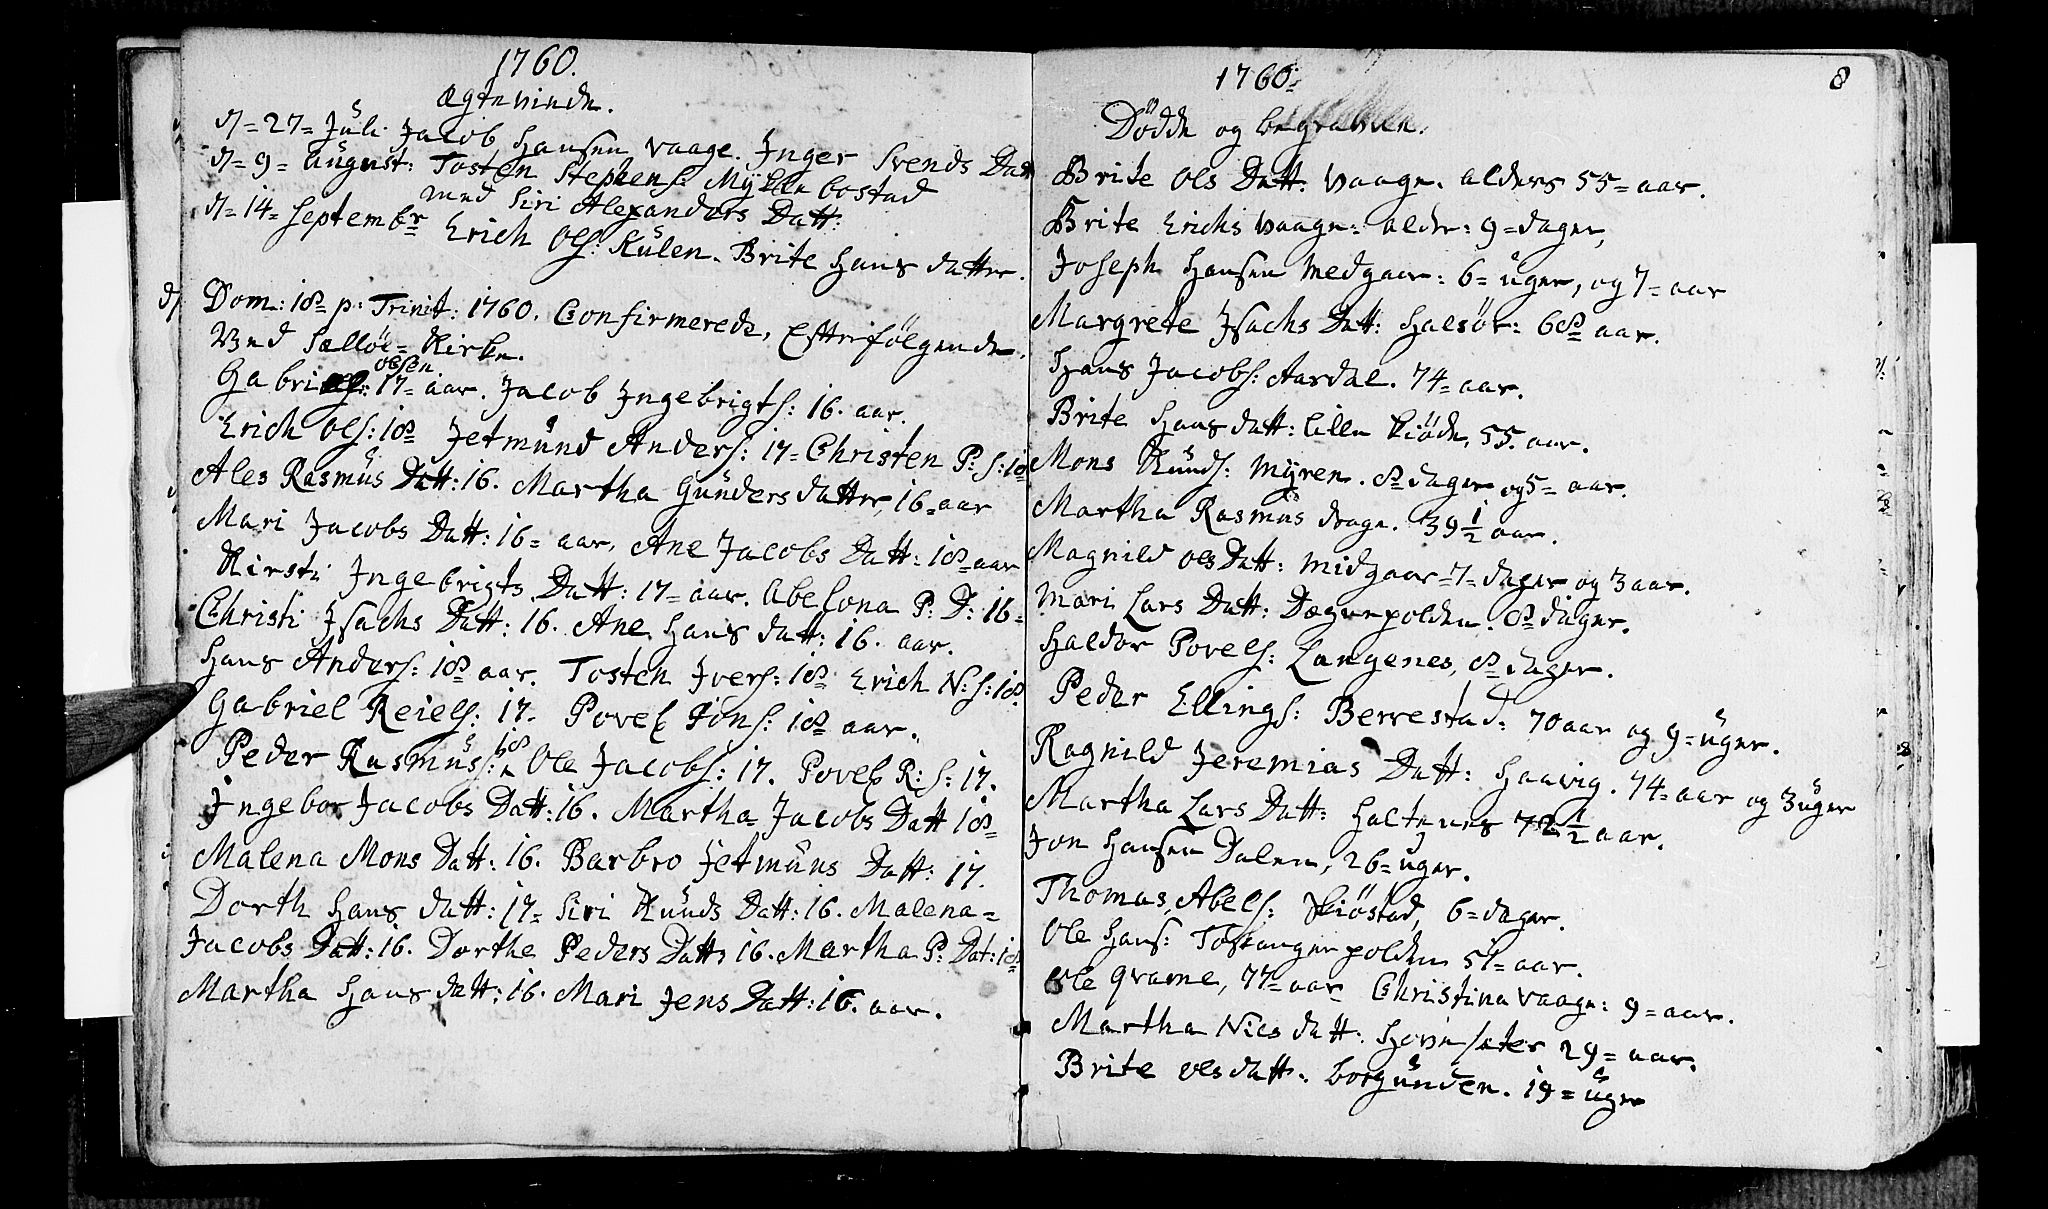 1760.
Ægteviede.
d= 27= Juli. Jacob Hansen Vaage. Inger Svends Datt
d= 9= August: Tosten Stephens: Mykle bostad
med Siri Alexanders Datt:
d= 14= Septembr Erich Ols: Kulen. Brite Hans datter.
d/ Dom: 18= p: Trinit: 1760. Confirmerede, Efterfølgende.
Ved Selløe= Kirke.
olsen
Gabriel: 17= aar. Jacob Ingebrigts: 16. aar.
Erich Ols: 18= Jetmund Anders: 17= Christen P: s: 18
Ales Rasmus Datt: 16. Martha Gunders datter 16= aar
Mari Jacobs Datt: 16= aar, Ane Jacobs Datt: 18= aar
Kirsti Ingebrigts Datt: 17= aar. Abelona P: D: 16=
Christi Isachs Datt: 16. Ane Hans datt: 16. aar.
Hans Anders: 18= aar. Tosten Ivers: 18= Erich N: s: 18.
Gabriel Reiels: 17. Povel Jöns: 18= aar.
Peder Rasmus: 18 Ole Jacobs: 17. Povel R: s: 17.
Ingebor Jacobs Datt: 16. Martha Jacobs Datt 18=
Malena Mons Datt: 16. Barbro Jetmuns Datt: 17.
Dorth Hans datt: 17= Siri Knuds Datt: 16. Malena=
Jacobs Datt: 16. Dorthe Peders Datt: 16. Martha P: Dat: 18
Martha Hans datt: 16. Mari Jens Datt: 16. aar.
8
1760:
Dödde og begravne.
Brite Ols Datt: Vaage. alders 55= aar.
Brite Erichs Vaage: alder: 9= dager,
Joseph Hansen Medgaar: 6= uger, og 7= aar
Margrete Isachs Datt: Halsör: 68= aar.
Hans Jacobs: Aardal. 74= aar.
Brite Hans datt: Lille Skiöde, 55. aar.
Mons Knuds: Myren. 8= dager og 5= aar.
Martha Rasmus drage. 39 1/2 aar.
Magnild Ols Datt: Midgaar= 7= dager og 3 aar.
Mari Lars Datt: Dægnepolden. 8= dager.
Haldor Povels: Langenes, 8= dager.
Peder Ellings: Berrestad: 70 aar og 9= uger.
Ragnild Jeremias Datt: Haavig. 74= aar og 3 uger
Martha Lars Datt: Haltenes 72 1/2 aar.
Jon Hansen Dalen, 26= uger.
Thomas Abels: Skiöstad, 6= dager.
Ole Hans: Toskangerpolden 51= aar.
Ole qvame, 77= aar Christina Vaage: 9= aar.
Martha Niels datt: Hovsæter 29= aar.
Brite Ols datt: borgunden. 19= uger